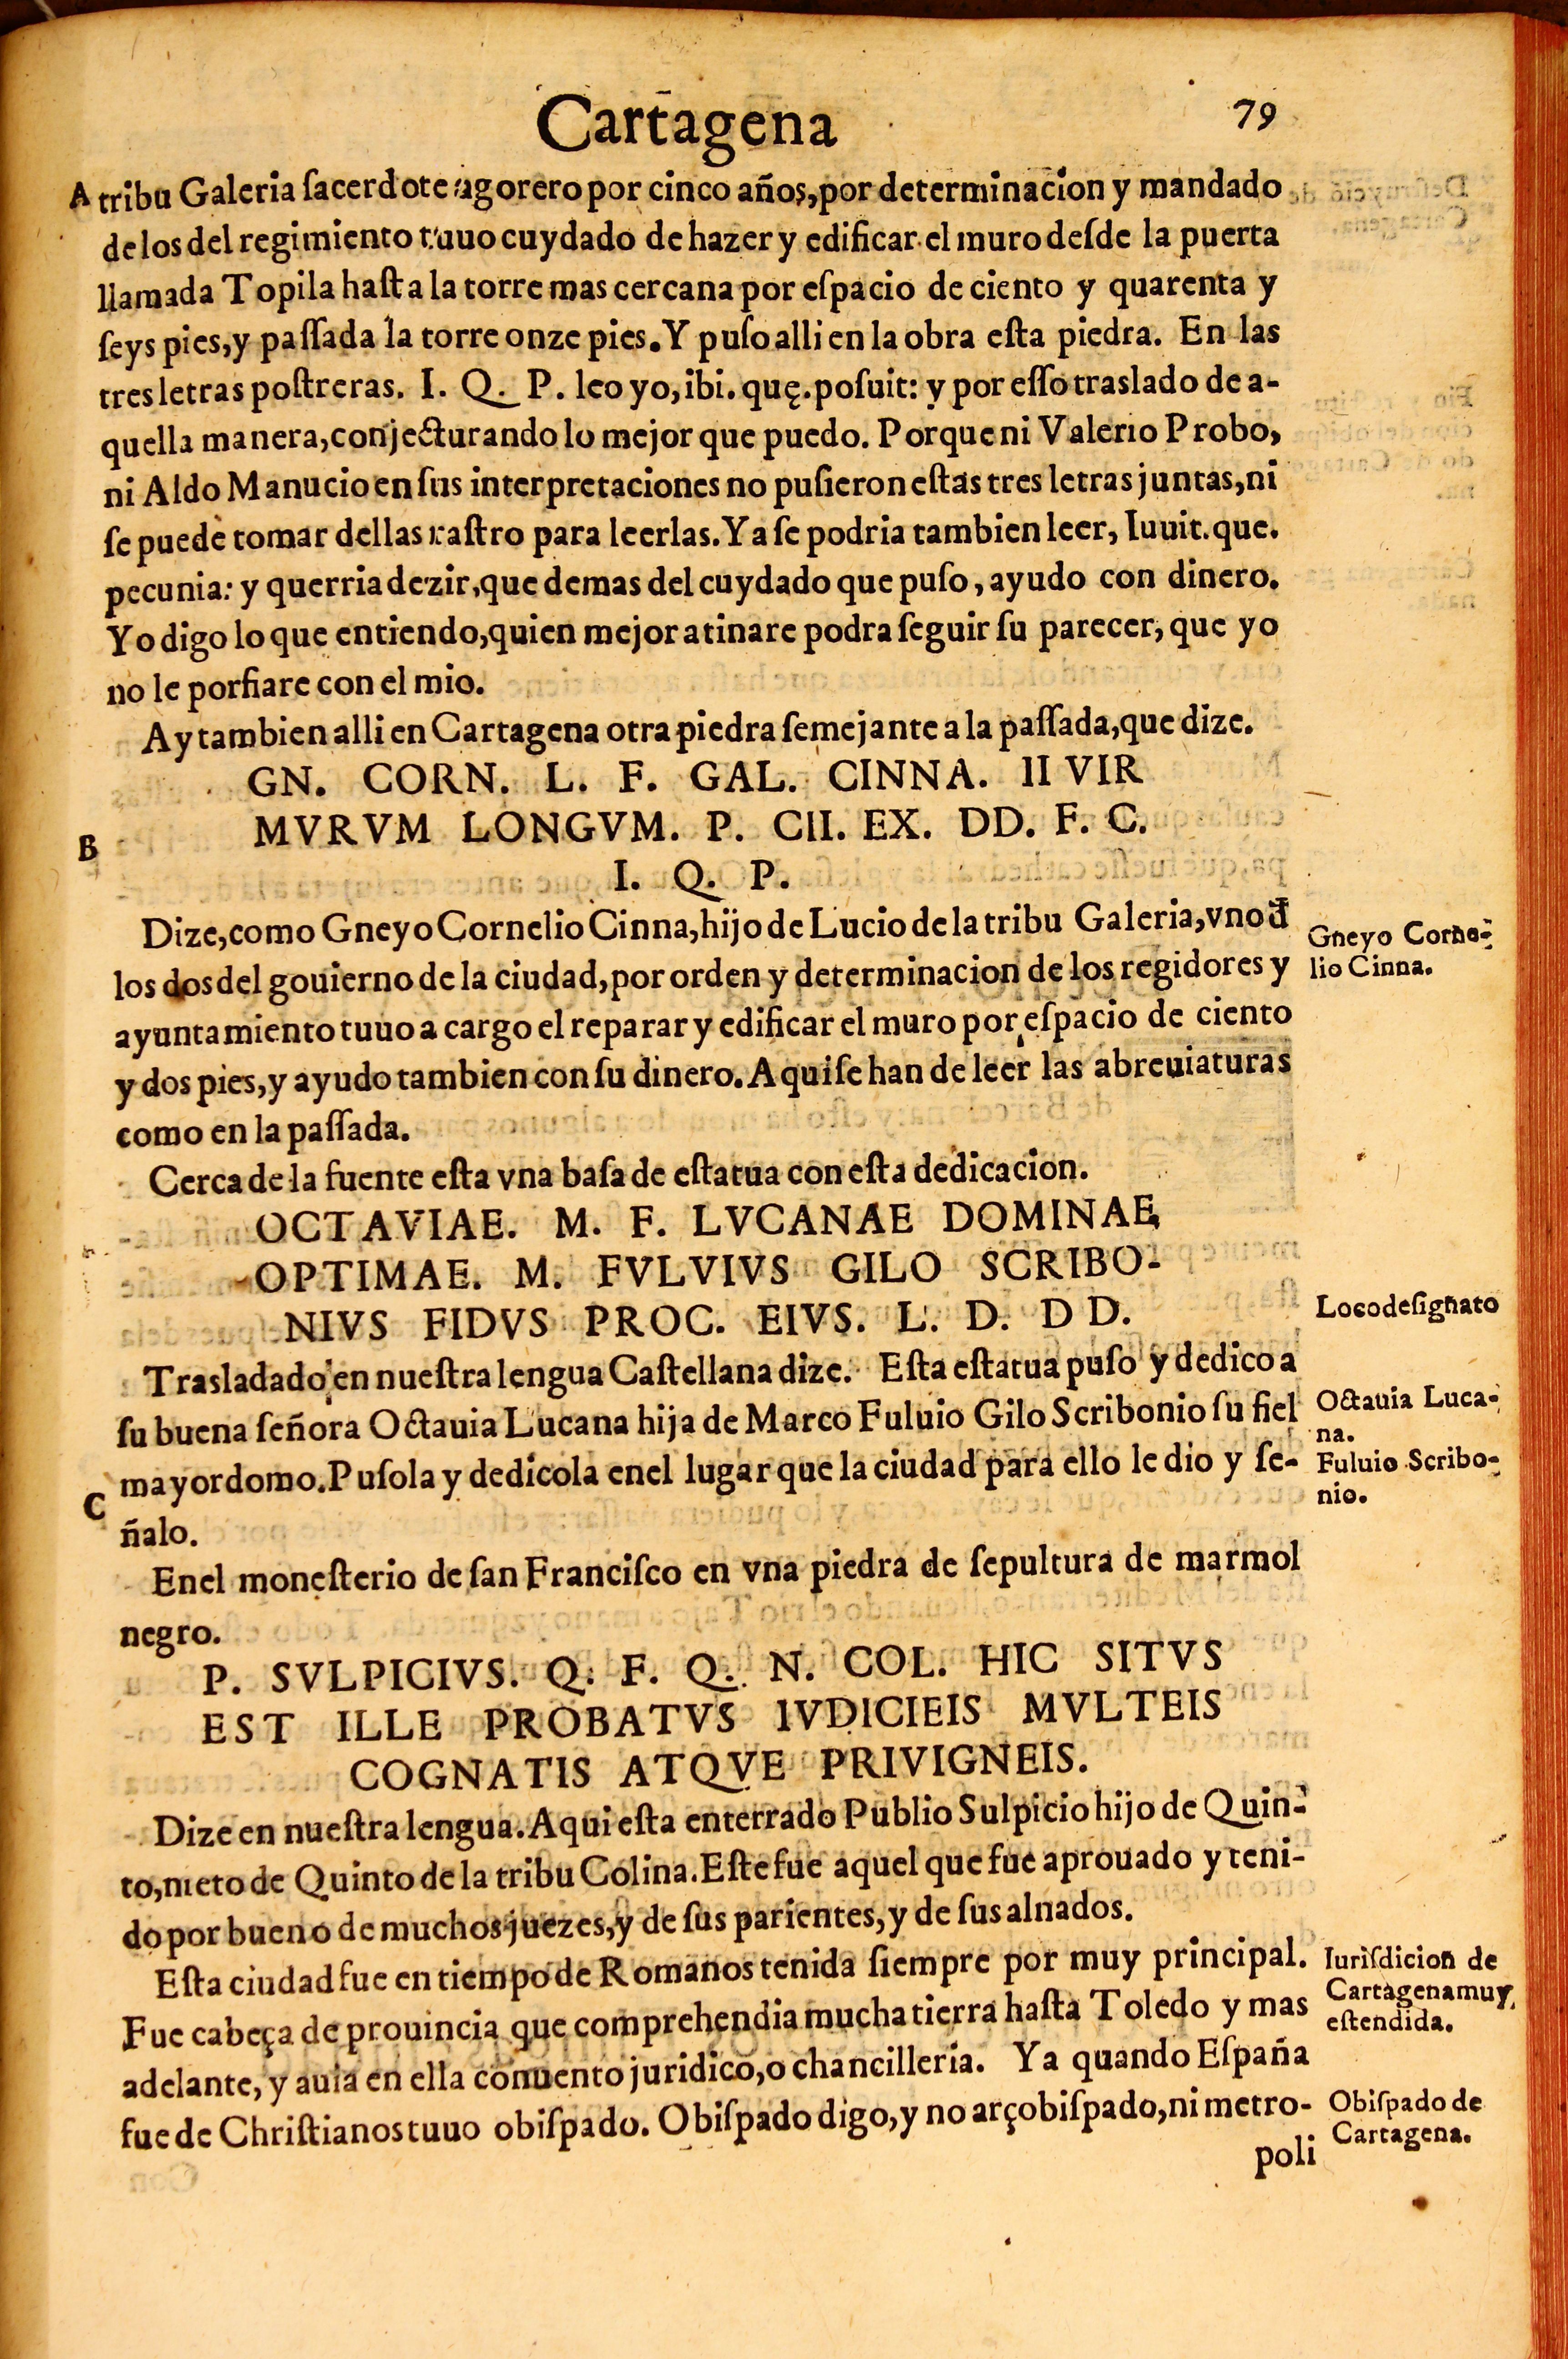 Cartagena
79
A tribu Galeria ſacerdote agorero por cinco años, por determinacion y mandado
de los del regimiento tuuo cuydado de hazer y edificar el muro deſde la puerta
llamada Topila haſta la torre mas cercana por eſpacio de ciento y quarenta y
ſeys pies, y paſſada la torre onze pies. Y puſo alli en la obra eſta piedra. En las
tres letras poſtreras. I. Q. P. leo yo, ibi. quę. poſuit: y por eſſo traslado de a-
quella manera, conjecturando lo mejor que puedo. Porque ni Valerio Probo,
ni Aldo Manucio en ſus interpretaciones no puſieron eſtas tres letras juntas, ni
ſe puede tomar dellas raſtro para leerlas. Ya ſe podria tambien leer, Iuuit. que.
pecunia: y querria dezir, que demas del cuydado que puſo, ayudo con dinero.
Yo digo lo que entiendo, quien mejor atinare podra ſeguir ſu parecer, que yo
no le porfiare con el mio.
Ay tambien alli en Cartagena otra piedra ſemejante a la paſſada, que dize.
GN. CORN. L. F. GAL. CINNA. II VIR
MVRVM LONGVM. P. CII. EX. DD. F. C.
B
I. Q. P.
Dize, como Gneyo Cornelio Cinna, hijo de Lucio de la tribu Galeria, vno đ
los dos del gouierno de la ciudad, por orden y determinacion de los regidores y
ayuntamiento tuuo a cargo el reparar y edificar el muro por eſpacio de ciento
y dos pies, y ayudo tambien con ſu dinero. Aqui ſe han de leer las abreuiaturas
como en la paſſada.
Gneyo Corne-
lio Cinna.
Cerca de la fuente eſta vna baſa de eſtatua con eſta dedicacion.
OCTAVIAE. M. F. LVCANAE DOMINAE
OPTIMAE. M. FVLVIVS GILO SCRIBO-
NIVS FIDVS PROC. EIVS. L. D. D D.
Loco deſignato
Trasladado en nueſtra lengua Caſtellana dize. Eſta eſtatua puſo y dedico a
ſu buena ſeñora Octauia Lucana hija de Marco Fuluio Gilo Scribonio ſu fiel
mayordomo. Puſola y dedicola enel lugar que la ciudad para ello le dio y ſe-
C
ñalo.
Octauia Luca-
na.
Fuluio Scribo-
nio.
Enel moneſterio de ſan Franciſco en vna piedra de ſepultura de marmol
negro.
P. SVLPICIVS. Q. F. Q. N. COL. HIC SITVS
EST ILLE PROBATVS IVDICIEIS MVLTEIS
COGNATIS ATQVE PRIVIGNEIS.
Dize en nueſtra lengua. Aqui eſta enterrado Publio Sulpicio hijo de Quin-
to, nieto de Quinto de la tribu Colina. Eſte fue aquel que fue aprouado y teni-
do por bueno de muchos juezes, y de ſus parientes, y de ſus alnados.
Eſta ciudad fue en tiempo de Romanos tenida ſiempre por muy principal.
Fue cabeça de prouincia que comprehendia mucha tierra haſta Toledo y mas
adelante, y auia en ella conuento juridico, o chancilleria. Ya quando Eſpaña
fue de Chriſtianos tuuo obiſpado. Obiſpado digo, y no arçobiſpado, ni metro-
poli
Iuriſdicion de
Cartagena muy
eſtendida.
Obiſpado de
Cartagena.